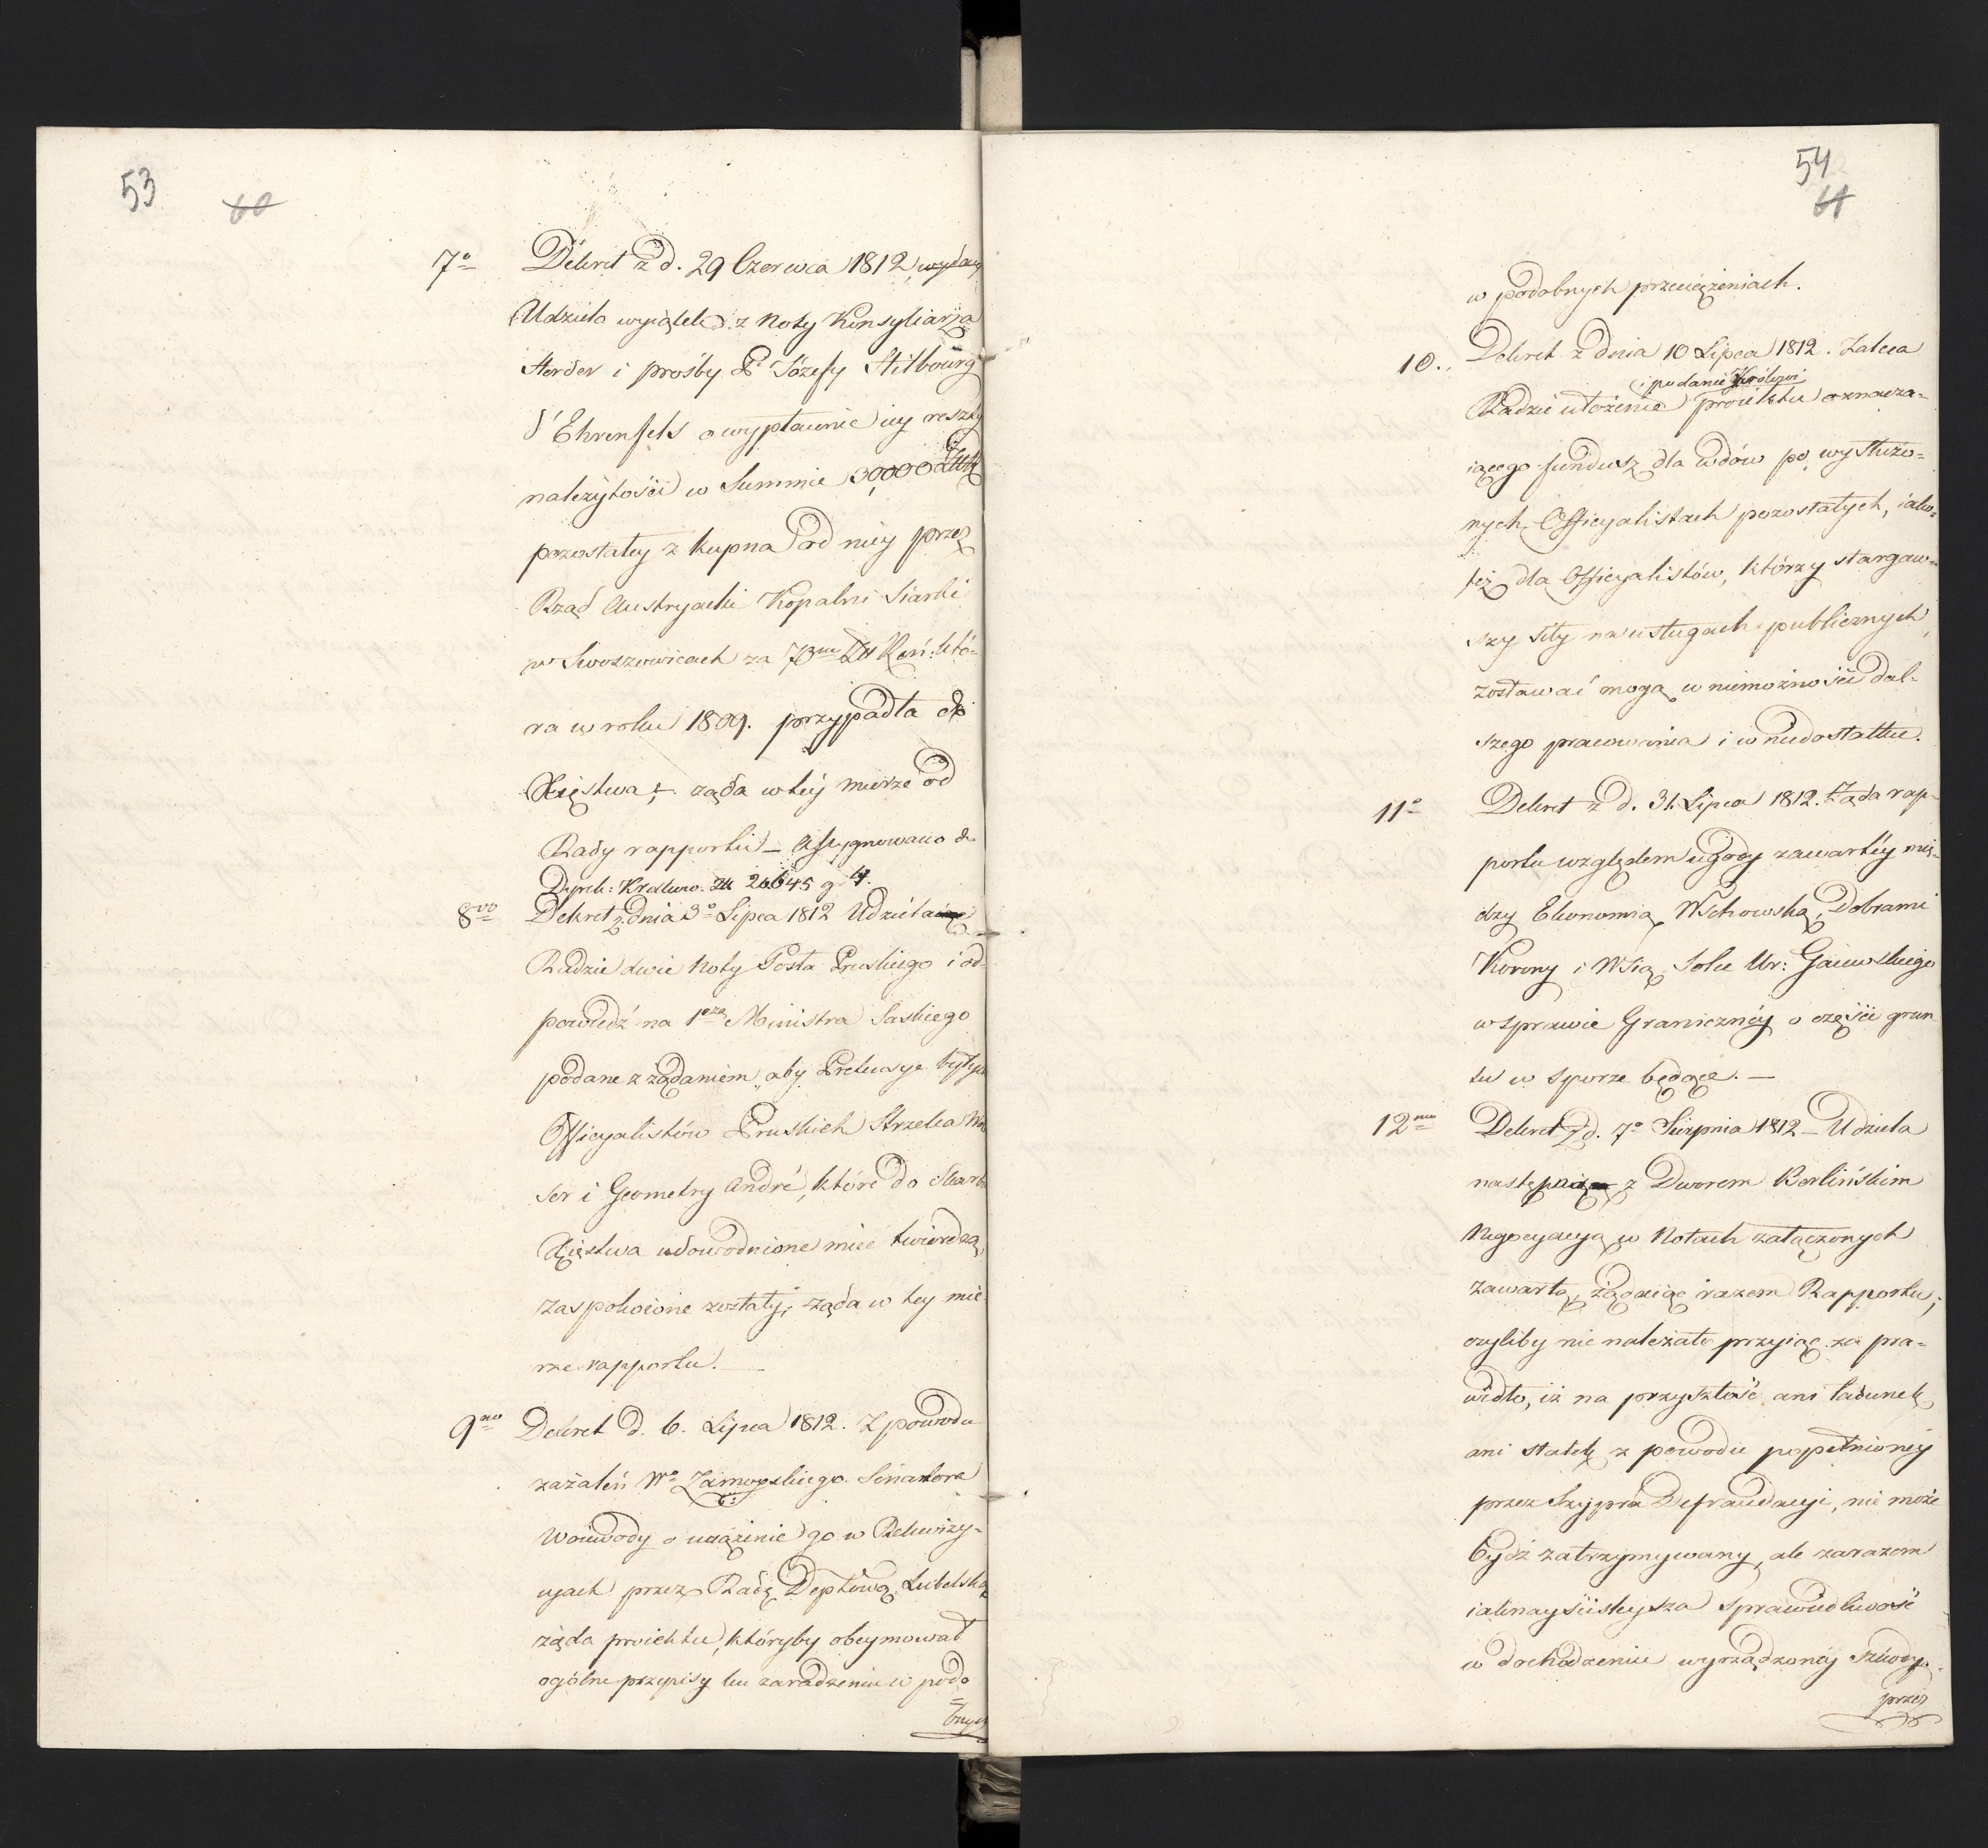 53
60
7o Dekret z d. 29 Czerwca 1812, wydany
Udziela wyiątek z Noty Konsyliarza
Herder i prośby P. Józefy Hilbourg
d'Ehrenfels o wypłacenie iey reszty
należytości w Summie 30,000
pozostałey z kupna od niey przez
Rząd Austryacki Kopalni Siarki
w Swoszowicach za 73m Koń: któ-
ra w roku 1809. przypadła do
Xięstwa, żąda w tey mierze od
Rady rapportu – Assygnowano do
Dyrek: Krakow. Zł 26645 g 4.
8vo Dekret z dnia 3o Lipca 1812 Udziela
Radzie dwie Noty Posła Pruskiego i od-
powiedź na 1szą Ministra Saskiego
podane z żądaniem, aby Pretensye byłych
Officyalistów Pruskich Strzelca
ser i Geometry André, które do Skarbu
Xięstwa udowodnione mieć twierdzą,
zaspokoione zostały; żąda w tey mie-
rze rapportu. —
9no Dekret d. 6. Lipca 1812. Z powodu
zażaleń Wo Zamoyskiego Senatora
Woiewody o urażenie go w Rekwizy-
cyach przez Radę Deptową Lubelską
żąda proiektu, któryby obeymował
ogólne przepisy ku zaradzeniu w podo
=
bnych
54
61
w podobnych przeciążeniach.
10. Dekret z dnia 10 Lipca 1812. Zaleca
i podanie Królowi
Radzie ułożenie proiektu oznacza-
iącego fundusz dla wdów po wysłużo-
nych Officyalistach pozostałych, iako-
też dla Officyalistów, którzy stargaw-
szy siły na usługach publicznych,
zostawać mogą w niemożności dal-
szego pracowania i w niedostatku.
11o Dekret z d. 31. Lipca 1812. Żąda rap-
portu względem ugody zawartey mię-
dzy Ekonomią Wschowską, Dobrami
Korony i Wsią Ur: Gaiewskiego
w sprawie Graniczney o części grun
tu w sporze będące. —
12mo Dekret z d. 7o Sierpnia 1812 – Udziela
następnią z Dworem Berlińskim
Negocyacyą w Notach załączonych
zawartą, żądaiąc razem Rapportu,
czyliby nie należało przyiąć za pra-
widło, iż na przyszłość ani ładunek,
ani statek z powodu popełnioney
przez Szypra Defraudacyi, nie może
bydź zatrzymywany, ale zarazem
iaknayściśleysza sprawiedliwość
w dochodzeniu wyrządzoney szkody.
przez